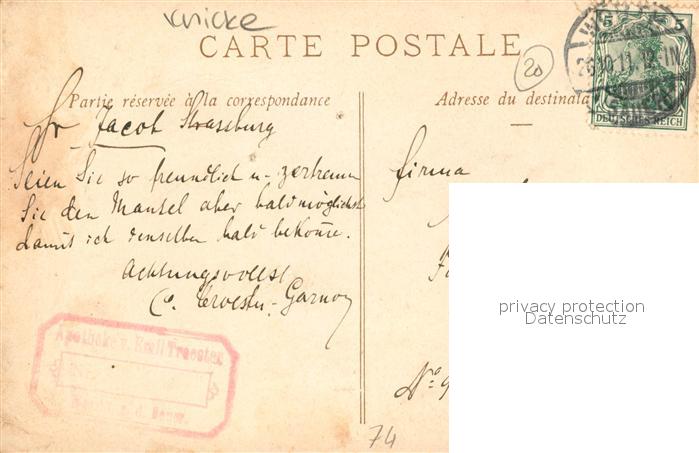 Knicke
CARTE POSTALE
20
5 5
DEUTSCHES REICH
26.10.11. 12-1N.
Partie réservée à la correspondance
Adresse du destinata
Hr Jacob Strassburg
Seien Sie so freundlich u. zertrennen
Sie den Mantel aber bald möglichst
damit ich denselben bald bekomme.
Achtungsvollst
C. Troester-Garnon
Firma
Apotheke v. Emil Troester
No 9
74
privacy protection
Datenschutz